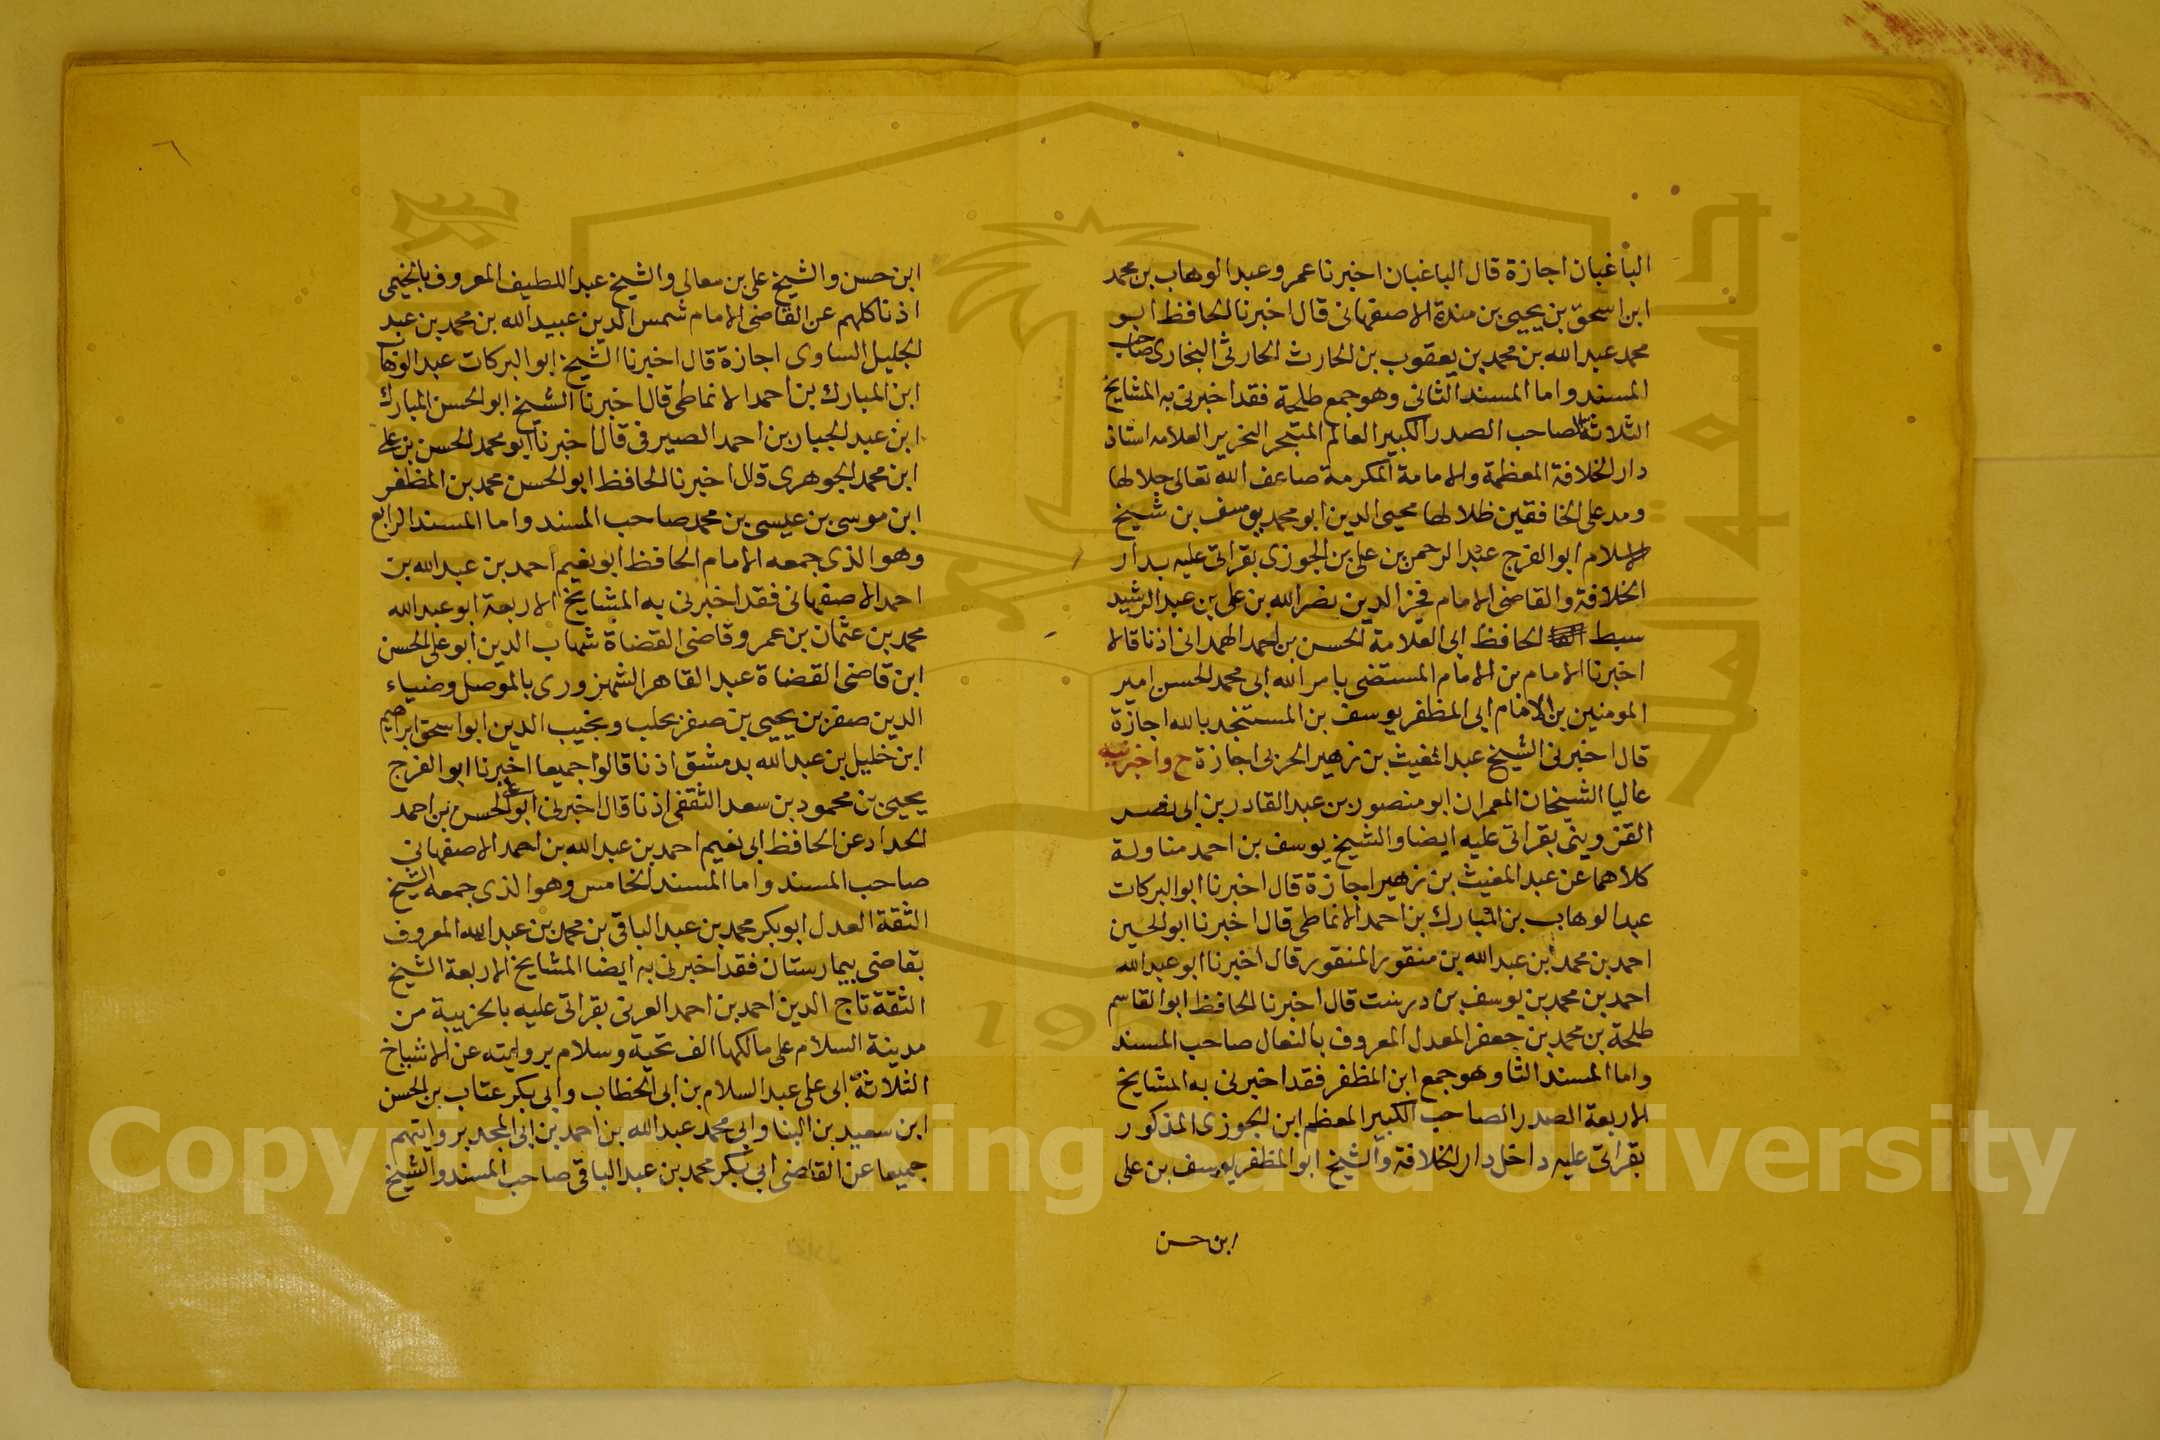 الباغبان اجازة قال الباغبان اخبرنا عمرو عبد الوهاب بن محمد
ابن اسحق بن يحيى بن مندة الاصفهانى قال اخبرنا الحافظ ابو
محمد عبد الله بن محمد بن يعقوب بن الحارث الحارثى البخارى صاحب
المسند واما المسند الثانى وهو جمع طلحة فقد اخبرنى به المشايخ
الثلاثة الصاحب الصدر الكبير العالم المتبحر النحرير العلامه استاذ
دار الخلافة المعظمة والامامة المكرمة ضاعف الله تعالى جلالها
ومد على الخافقين ظلالها محيى الدين ابو محمد يوسف بن شيخ
الاسلام ابو الفرج عبد الرحمن بن على بن الجوزى بقراتى عليه بدار
الخلافة والقاضى الامام فخر الدين نصر الله بن على بن عبد الرشيد
سبط الحافظ ابى العلامة الحسن بن احمد الهمدانى اذنا قالا
اخبرنا الامام بن الامام المستضى بامر الله ابى محمد الحسن امير
المومنين بن الامام ابى المظفر يوسف بن المستنجد بالله اجازة
قال اخبرنى الشيخ عبد المغيث بن زهير الحربى اجازة ح واخبرنيه
عاليا الشيخان المعمران ابو منصور بن عبد القادر بن ابى نصر
القزوينى بقراتى عليه ايضا والشيخ يوسف بن احمد مناولة
كلاهما عن عبد المغيث بن زهير اجازة قال اخبرنا ابو البركات
عبد الوهاب بن المبارك بن احمد الانماطى قال اخبرنا ابو الحسين
احمد بن محمد بن عبد الله بن منقور المنقور قال اخبرنا ابو عبد الله
احمد بن محمد بن يوسف بن درست قال اخبرنا الحافظ ابو القاسم
طلحة بن محمد بن جعفر المعدل المعروف بالنعال صاحب المسند
واما المسند الثا وهو جمع ابن المظفر فقد اخبرنى به المشايخ
الاربعة الصدر الصاحب الكبير المعظم ابن الجوزى المذكور
بقراتى عليه داخل دار الخلافة والشيخ ابو المظفر يوسف بن على
ابن حسن
٦
ابن حسن والشيخ على بن معالى والشيخ عبد اللطيف المعروف بالخيمى
اذنا كلهم عن القاضى الامام شمس الدين عبيد الله بن محمد بن عبد
الجليل الساوى اجازة قال اخبرنا الشيخ ابو البركات عبد الوها
ابن المبارك بن احمد الانماطى قال اخبرنا الشيخ ابو الحسن المبارك
ابن عبد الجبار بن احمد الصيرفى قال اخبرنا ابو محمد الحسن بن على
ابن محمد الجوهرى قال اخبرنا الحافظ ابو الحسن محمد بن المظفر
ابن موسى بن عيسى بن محمد صاحب المسند واما المسند الرابع
وهو الذى جمعه الامام الحافظ ابو نعيم احمد بن عبد الله بن
احمد الاصفهانى فقد اخبرنى به المشايخ الاربعة ابو عبد الله
محمد بن عثمان بن عمر وقاضى القضاة شهاب الدين ابو على الحسن
ابن قاضى القضاة عبد القاهر الشهزورى بالموصل وضياء
الدين صقر بن يحيى بن صقر بحلب ونجيب الدين ابو اسحق ابراهيم
ابن خليل بن عبد الله بدمشق اذنا قالوا جميعا اخبرنا ابو الفرج
يحيى بن محمود بن سعد الثقفى اذنا قال اخبرنى ابو على الحسن بن احمد
الحداد عن الحافظ ابى نعيم احمد بن عبد الله بن احمد الاصفهانى
صاحب المسند واما المسند الخامس وهو الذى جمعه الشيخ
الثقة العدل ابو بكر محمد بن عبد الباقى بن محمد بن عبد الله المعروف
بقاضى بيمارستان فقد اخبرنى به ايضا المشايخ الاربعة الشيخ
الثقة تاج الدين احمد بن احمد العرنى بقراتى عليه بالحزبية من
مدينة السلام على مالكها الف تحية وسلام بروايته عن الاشياخ
الثلاثة ابى على عبد السلام بن ابى الخطاب وابى بكر عتاب بن الحسن
ابن سعيد بن البنا وابى محمد عبد الله بن احمد بن ابى المجد بروايتهم
جميعا عن القاضى ابى بكر محمد بن عبد الباقى صاحب المسند والشيخ
جامعة الملك سعود
1957
Copyright © King Saud University